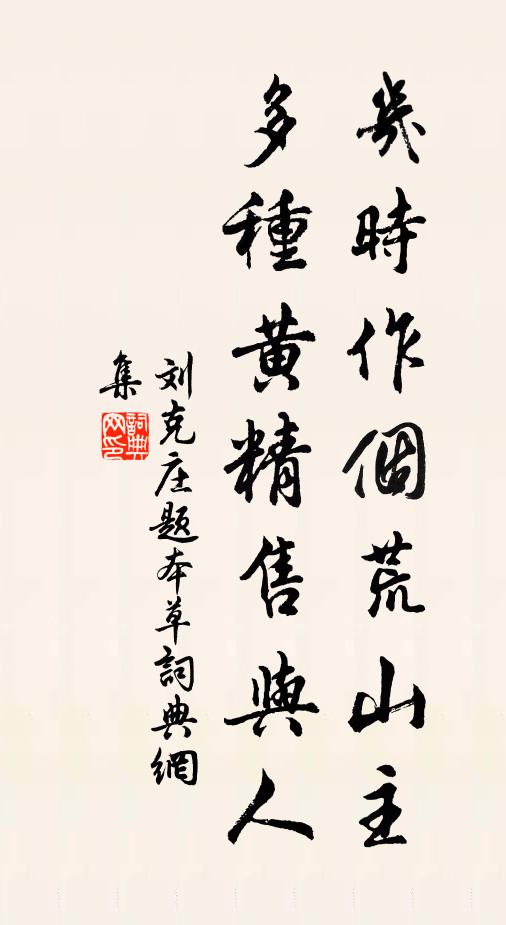 幾時作個荒山主
多種黄精售與人
刘克庄题本草詞典網
集
詞典網印